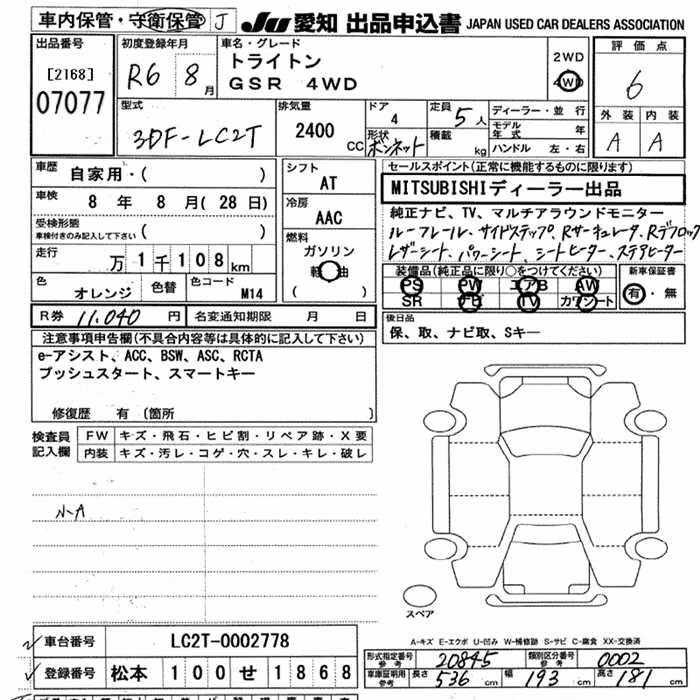 車内保管・守衛保管 J
JU 愛知 出品申込書 JAPAN USED CAR DEALERS ASSOCIATION
出品番号
[2168]
07077
初度登録年月
R6 8月
車名・グレード
トライトン
GSR 4WD
2WD
4WD
評価点
6
外装 内装
A A
型式
3DF-LC2T
排気量
2400 CC
ドア
4
形状
ボンネット
定員 5人
積載 kg
ディーラー・並行
モデル年式 年
ハンドル 左・右
車歴
自家用・( )
車検
8年 8月(28日)
受検形態
車検付きのみ記入して下さい ( )
走行
万1千108km
色
オレンジ
色替
色コード
M14
シフト
AT
冷房
AAC
燃料
ガソリン
軽油
( )
セールスポイント(正常に機能するものに限ります)
MITSUBISHIディーラー出品
純正ナビ、TV、マルチアラウンドモニター
ルーフレール、サイドステップ、Rサーキュレータ、Rデフロック
レザーシート、パワーシート、シートヒーター、ステアヒーター
装備品(純正品に限り○をつけてください)
PS PW エアB AW
SR ナビ TV カワシート
新車保証書
有・無
R券 11,040円
名変通知期限 月 日
後日品
保、取、ナビ取、Sキー
注意事項申告欄(不具合内容等は具体的に記入して下さい)
e-アシスト、ACC、BSW、ASC、RCTA
プッシュスタート、スマートキー
修復歴 有(箇所 )
検査員
記入欄
FW キズ・飛石・ヒビ割・リペア跡・X要
内装 キズ・汚レ・コゲ・穴・スレ・キレ・破レ
スペア
A-キズ E-エクボ U-凹み W-補修跡 S-サビ C-腐食 XX-交換済
車台番号 LC2T-0002778
登録番号 松本 100 せ 1868
形式指定番号
参考
20845
類別区分番号
参考
0002
車庫証明用
参考
長さ 536cm 幅 193cm 高さ 181cm